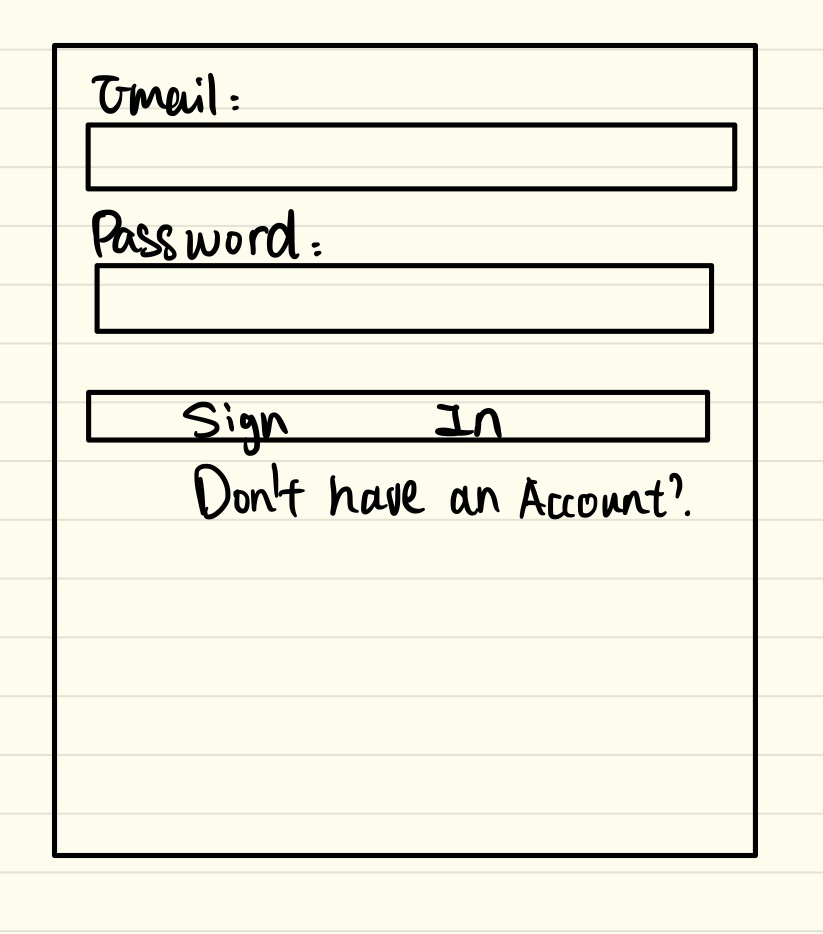 Email:
Password:
Sign In
Don't have an Account?